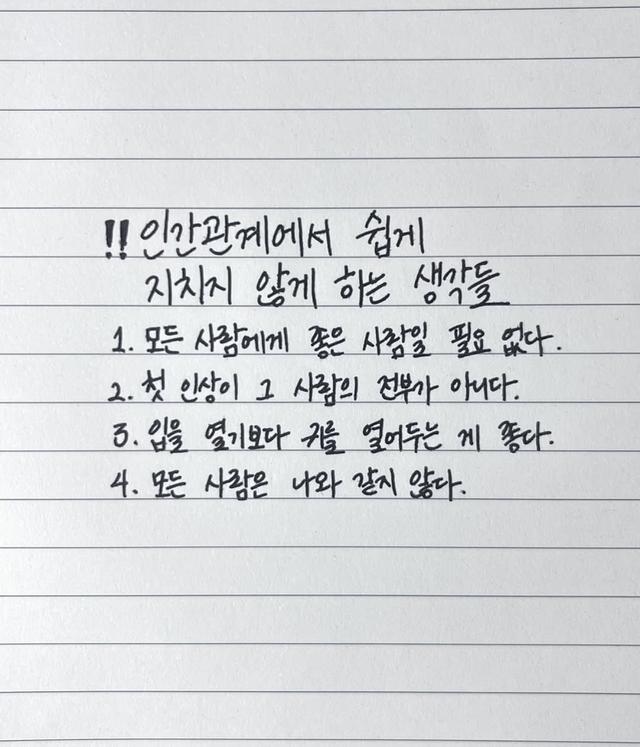 !! 인간관계에서 쉽게
지치지 않게 하는 생각들
1. 모든 사람에게 좋은 사람일 필요 없다.
2. 첫 인상이 그 사람의 전부가 아니다.
3. 입을 열기보다 귀를 열어두는 게 좋다.
4. 모든 사람은 나와 같지 않다.